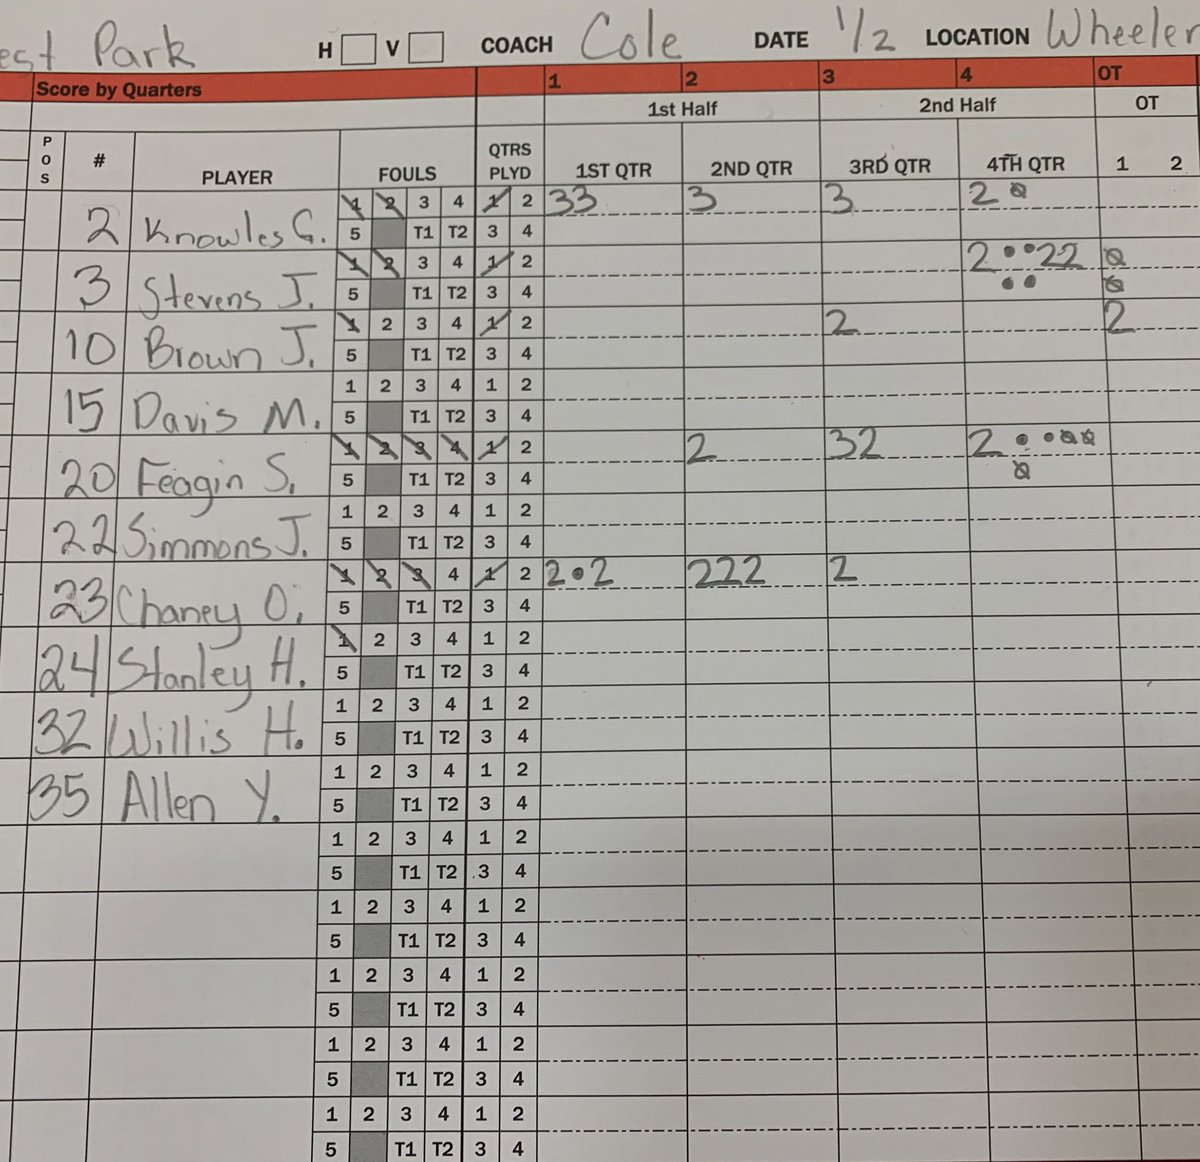 est Park H V COACH Cole DATE 1/2 LOCATION Wheeler
Score by Quarters 1 2 3 4 OT
1st Half 2nd Half OT
POS # PLAYER FOULS QTRS PLYD 1ST QTR 2ND QTR 3RD QTR 4TH QTR 1 2
1 2 3 4 1 2 33 3 3 2
2 Knowles G. 5 T1 T2 3 4
1 2 3 4 1 2 2 22
3 Stevens J. 5 T1 T2 3 4
1 2 3 4 1 2 2 2
10 Brown J. 5 T1 T2 3 4
1 2 3 4 1 2
15 Davis M. 5 T1 T2 3 4
1 2 3 4 1 2 2 32 2
20 Feagin S. 5 T1 T2 3 4
1 2 3 4 1 2
22 Simmons J. 5 T1 T2 3 4
1 2 3 4 1 2 2•2 222 2
23 Chaney O. 5 T1 T2 3 4
1 2 3 4 1 2
24 Stanley H. 5 T1 T2 3 4
1 2 3 4 1 2
32 Willis H. 5 T1 T2 3 4
1 2 3 4 1 2
35 Allen Y. 5 T1 T2 3 4
1 2 3 4 1 2
5 T1 T2 3 4
1 2 3 4 1 2
5 T1 T2 3 4
1 2 3 4 1 2
5 T1 T2 3 4
1 2 3 4 1 2
5 T1 T2 3 4
1 2 3 4 1 2
5 T1 T2 3 4